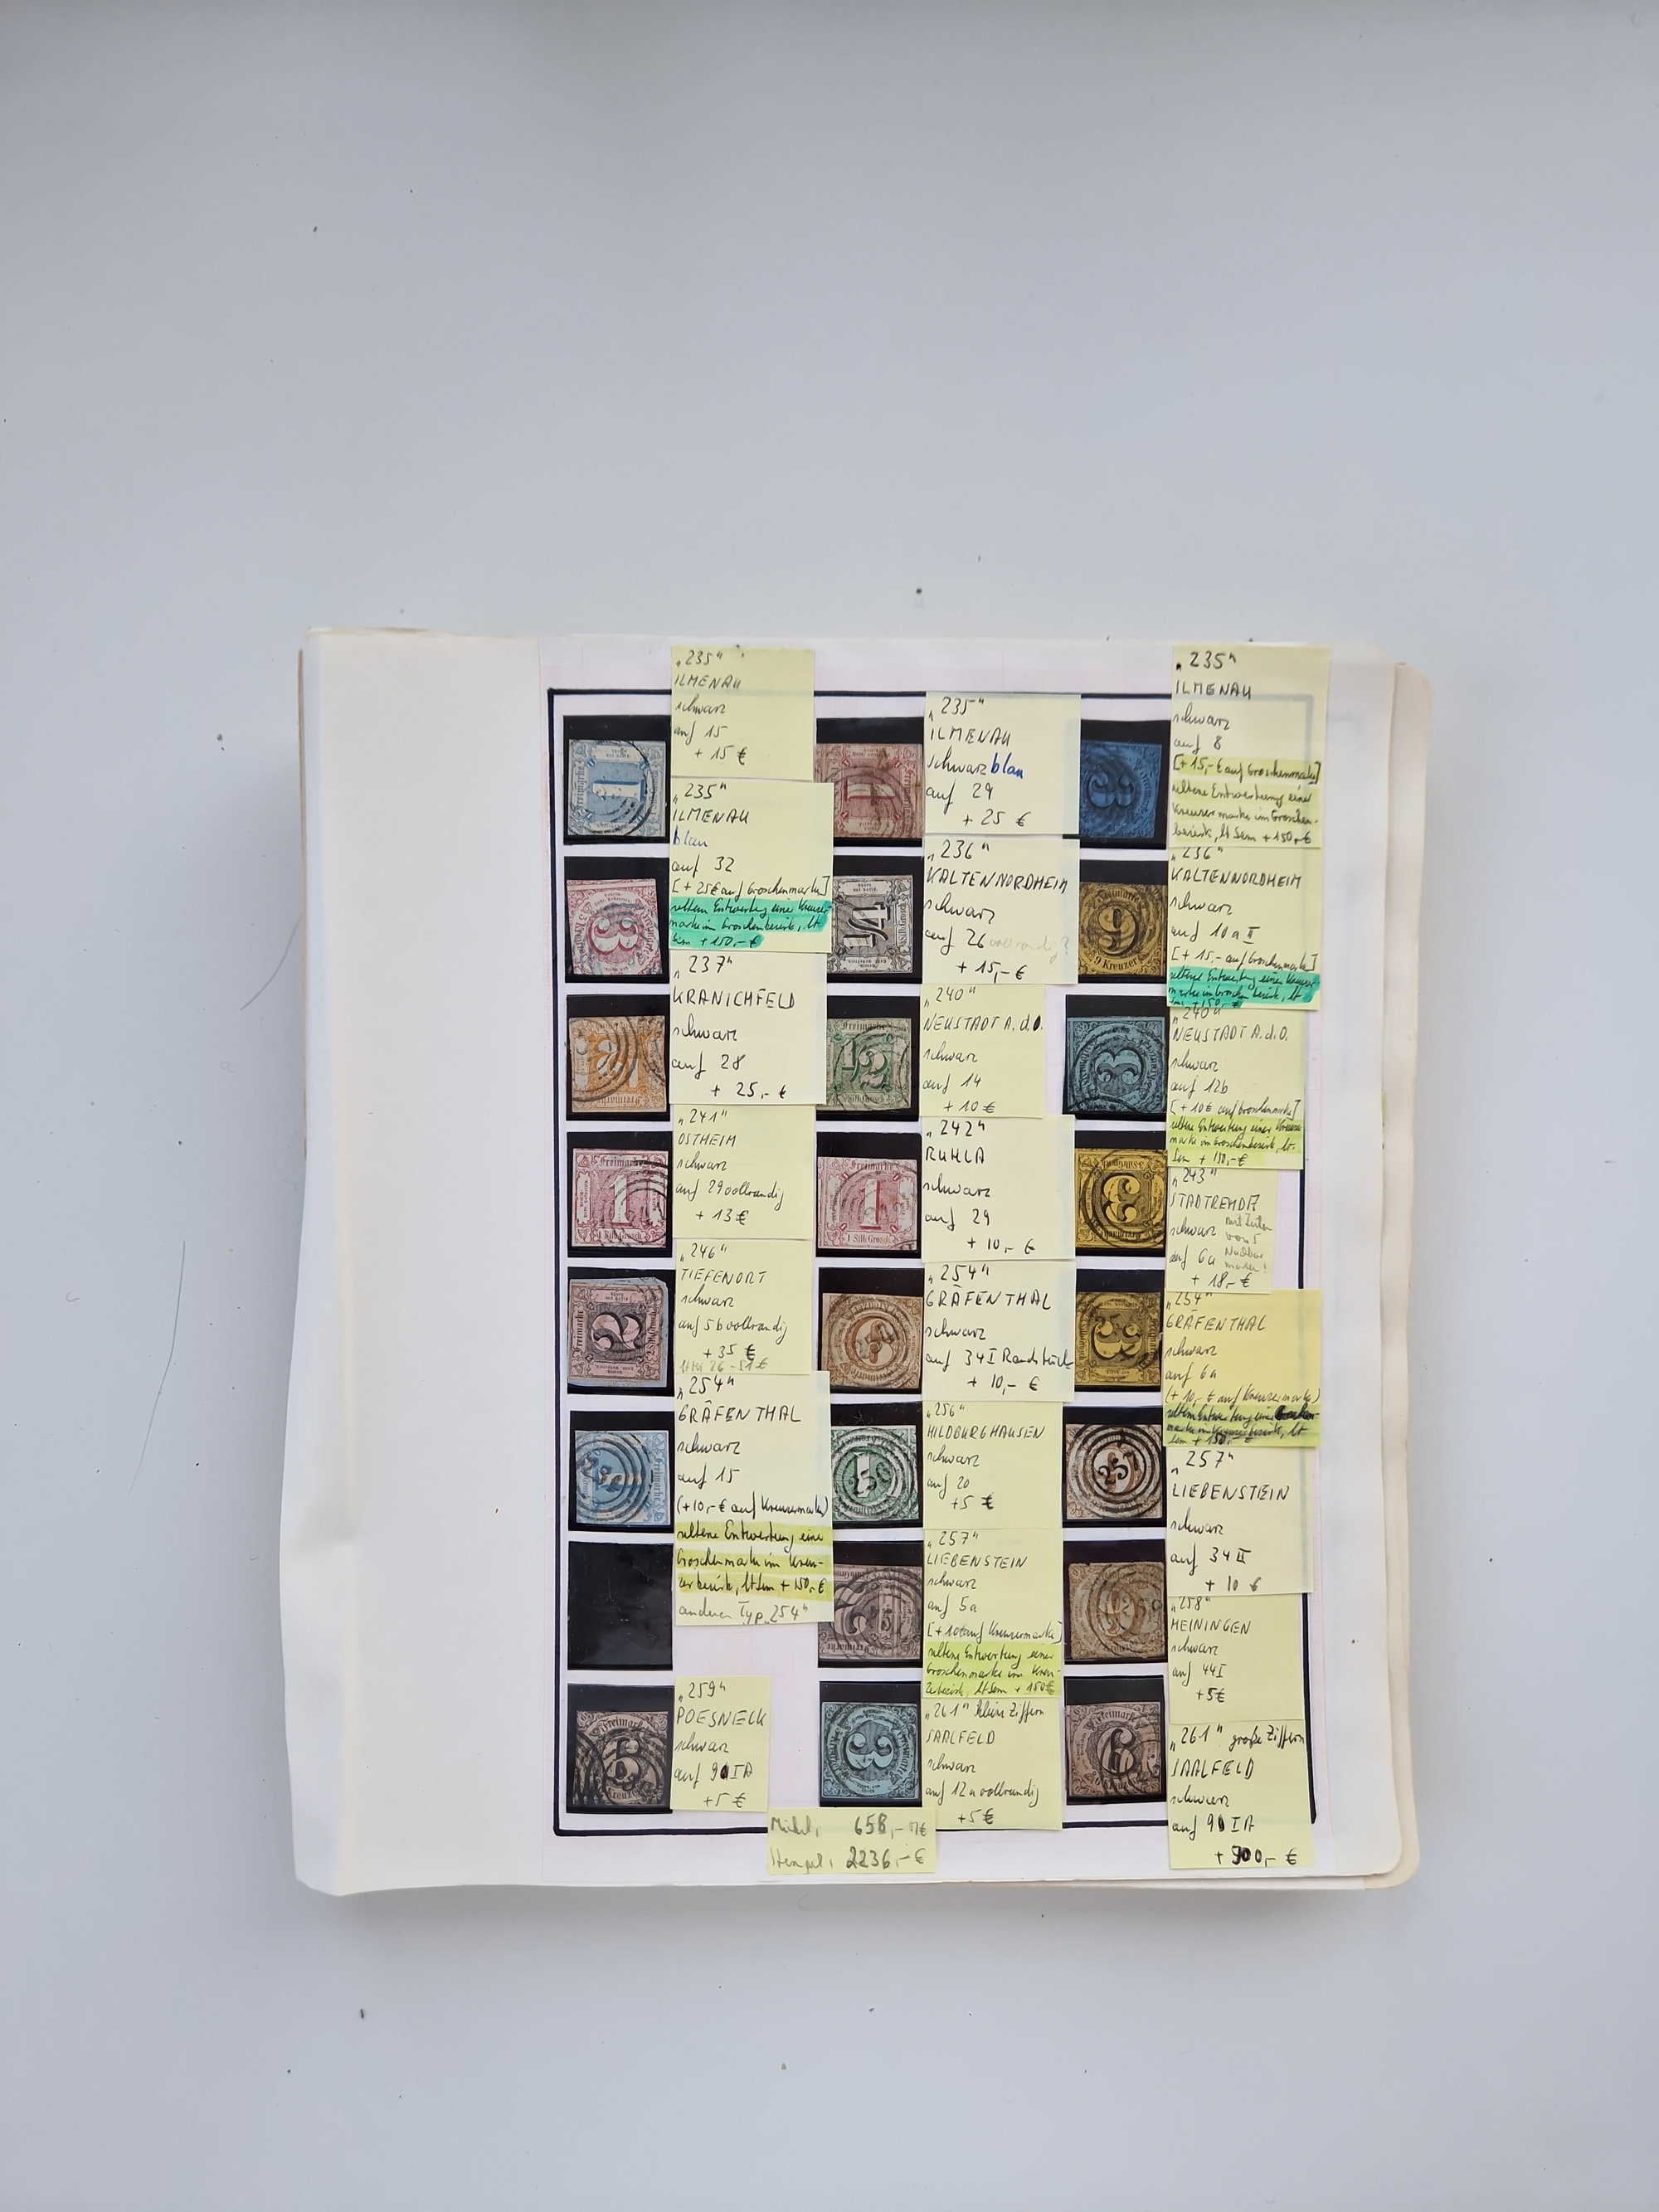 „235“
ILMENAU
schwarz
auf 15
+ 15 €
„235“
ILMENAU
schwarz blau
auf 29
+ 25 €
„235“
ILMENAU
schwarz
auf 8
[+ 15,- € auf Groschenmarke]
seltene Entwertung einer
Kreuzermarke im Groschen-
bezirk, lt Sem + 150,- €
„235“
ILMENAU
blau
auf 32
[+ 25 € auf Groschenmarke]
seltene Entwertung eine Kreuzer-
marke im Groschenbezirk, lt
Sem + 150,- €
„236“
KALTENNORDHEIM
schwarz
auf 26 vollrandig?
+ 15,- €
„236“
KALTENNORDHEIM
schwarz
auf 10a II
[+ 15,- auf Groschenmarke]
seltene Entwertung einer Kreuzer-
marke im Groschenbezirk, lt
Sem + 150,- €
„237“
KRANICHFELD
schwarz
auf 28
+ 25,- €
„240“
NEUSTADT A.d.O.
schwarz
auf 14
+ 10 €
„240“
NEUSTADT A.d.O.
schwarz
auf 12b
[+ 10 € auf Groschenmarke]
seltene Entwertung einer Kreuzer-
marke im Groschenbezirk, lt-
Sem + 150,- €
„241“
OSTHEIM
schwarz
auf 29 vollrandig
+ 13 €
„242“
RUHLA
schwarz
auf 29
+ 10,- €
„243“
STADTREMDA
schwarz
auf 6a
mit Teilen
von 5
Nachbar
marken!
+ 18,- €
„246“
TIEFENORT
schwarz
auf 5b vollrandig
+ 35 €
„254“
GRÄFENTHAL
schwarz
auf 34 I Randstück
+ 10,- €
„254“
GRÄFENTHAL
schwarz
auf 6a
(+ 10,- € auf Kreuzermarke)
Sem + 150,- €
„254“
GRÄFENTHAL
schwarz
auf 15
(+10,- € auf Kreuzermarke)
seltene Entwertung eine
Groschenmarke im Kreu-
zerbezirk, lt Sem + 150,- €
anderen Typ „254“
„256“
HILDBURGHAUSEN
schwarz
auf 20
+5 €
257
„257“
LIEBENSTEIN
schwarz
auf 34 II
+ 10 €
„257“
LIEBENSTEIN
schwarz
auf 5a
[+ 10 € auf Kreuzermarke]
seltene Entwertung einer
Groschenmarke im Kreu-
zerbezirk, lt Sem + 150 €
„258“
MEININGEN
schwarz
auf 44 I
+5 €
„259“
POESNECK
schwarz
auf 9 IA
+5 €
„261“ kleine Ziffern
SAALFELD
schwarz
auf 12a vollrandig
+5 €
„261“ große Ziffern
SAALFELD
schwarz
auf 9 IA
+ 900,- €
Michel, 658,- M€
Stempel, 2236,- €